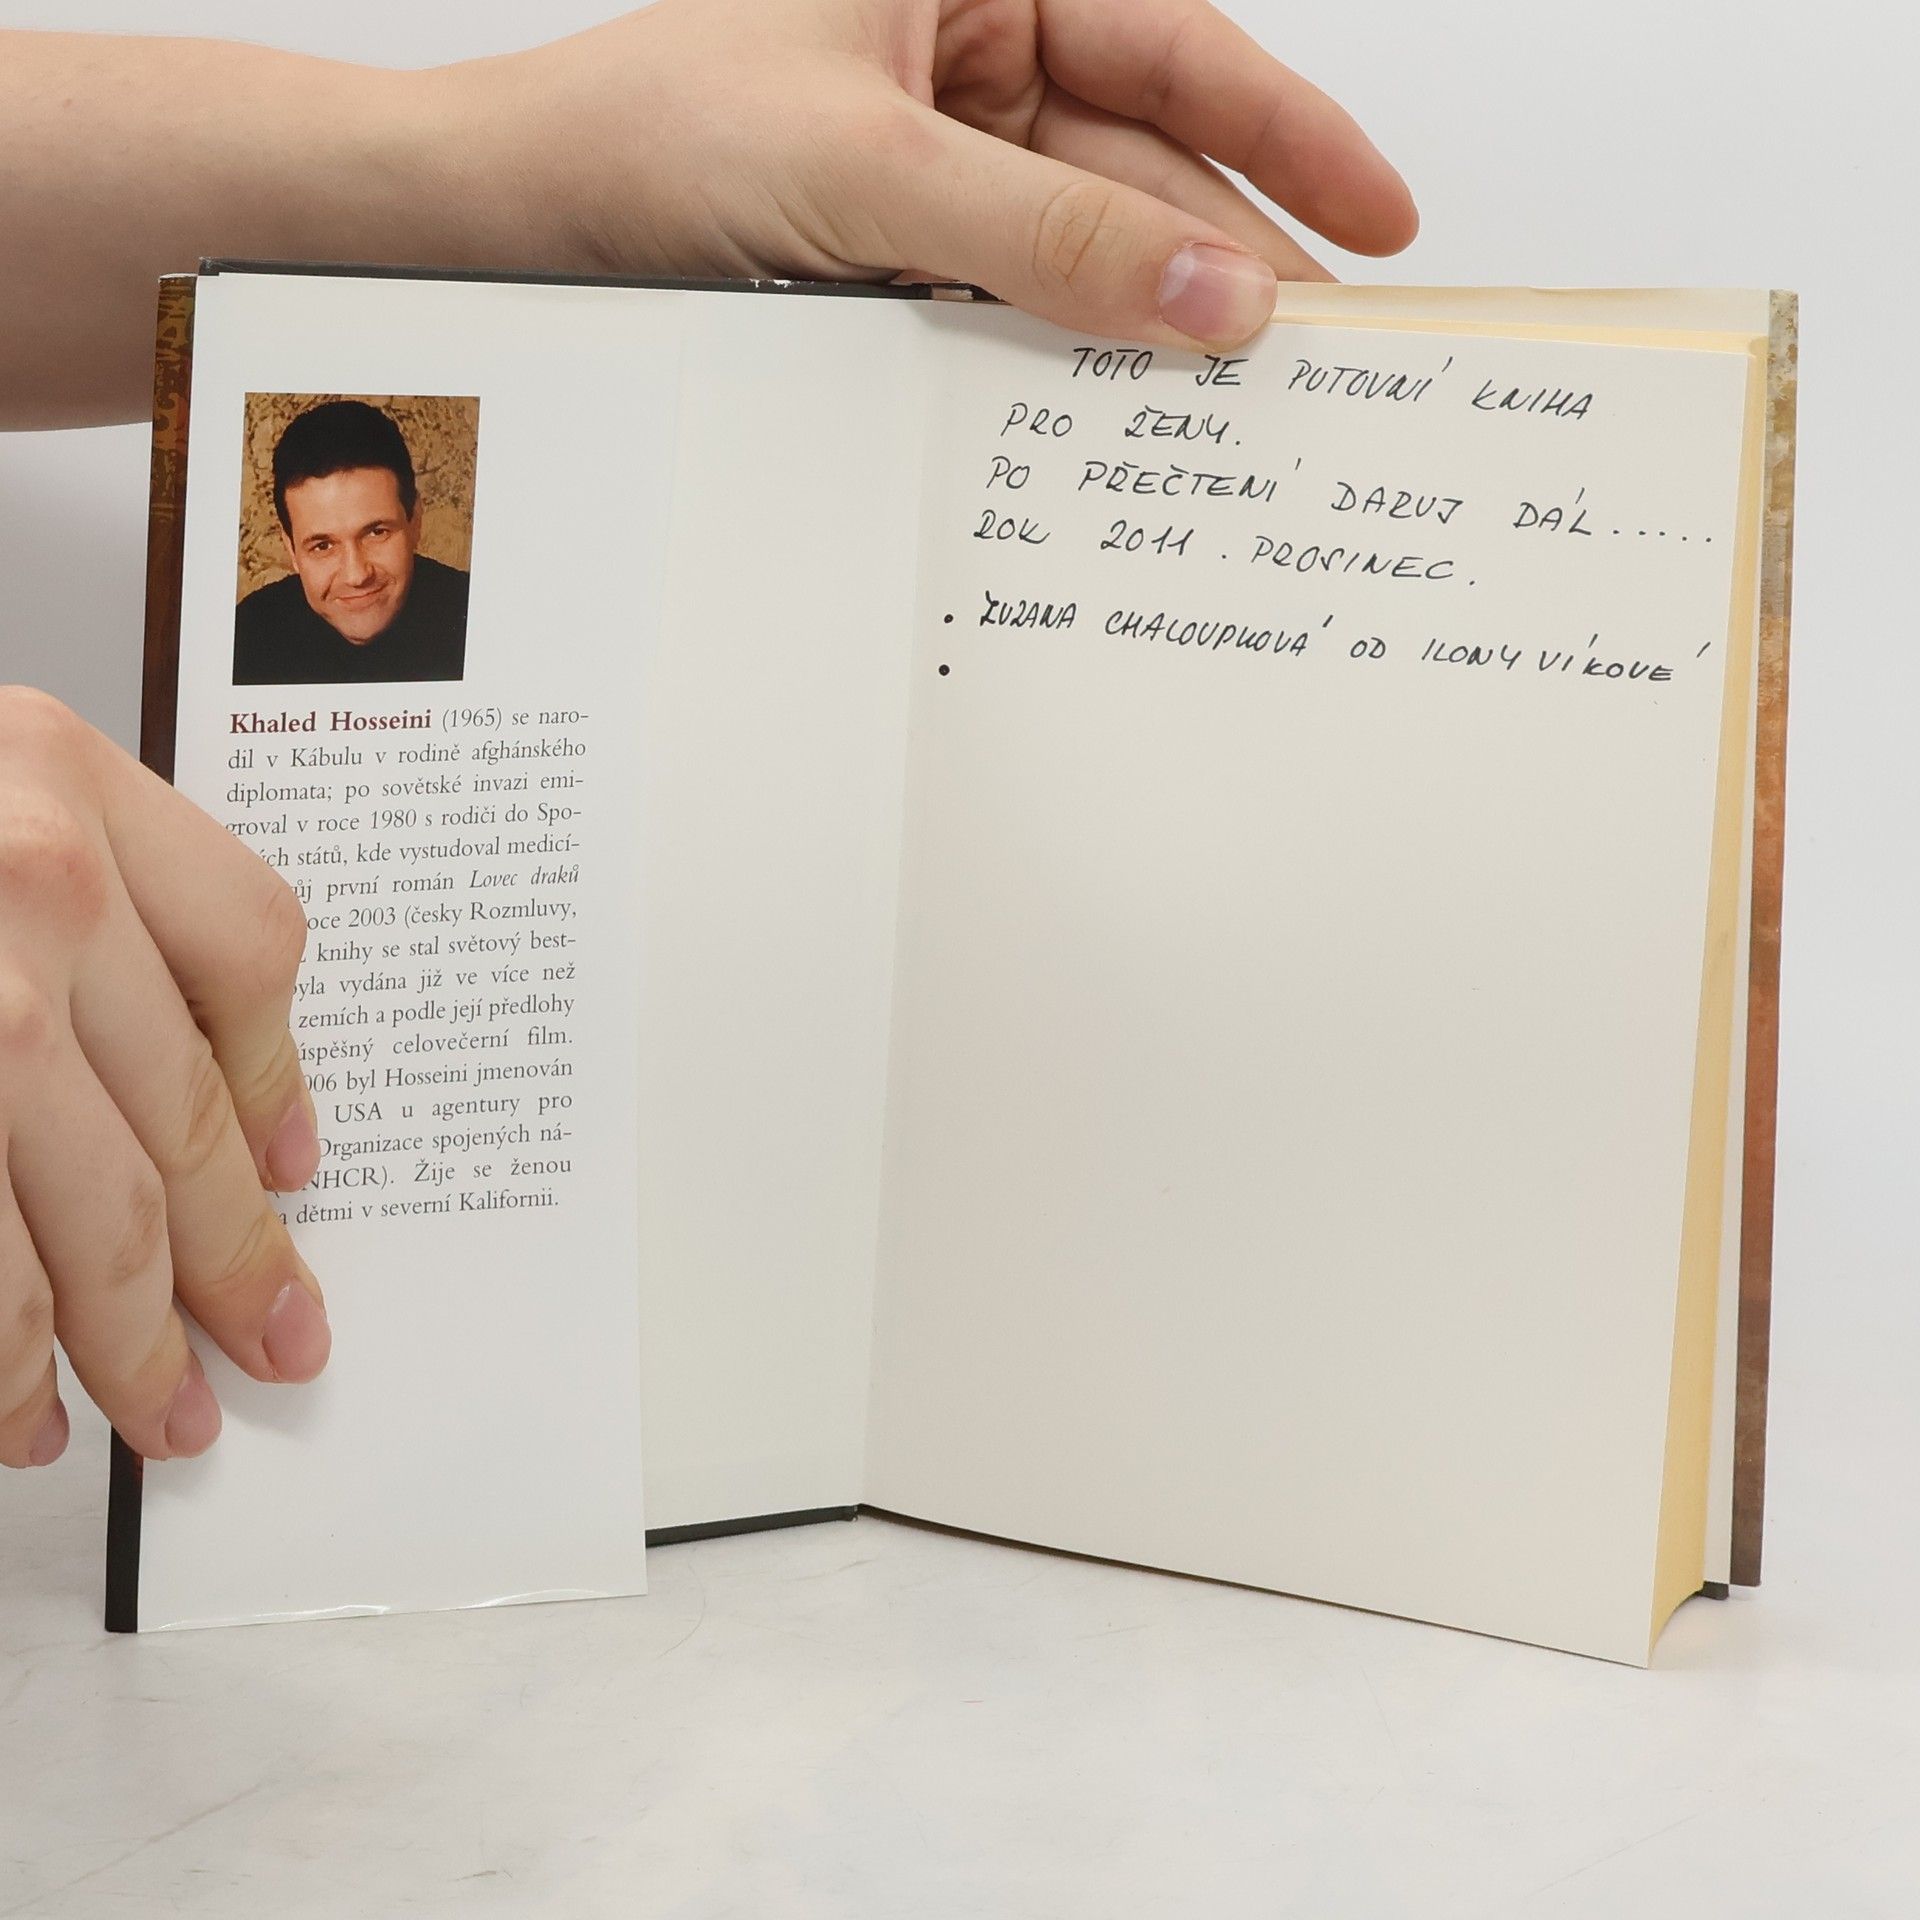 Khaled Hosseini (1965) se naro-
dil v Kábulu v rodině afghánského
diplomata; po sovětské invazi emi-
groval v roce 1980 s rodiči do Spo-
ch států, kde vystudoval medicí-
ůj první román Lovec draků
oce 2003 (česky Rozmluvy,
knihy se stal světový best-
byla vydána již ve více než
zemích a podle její předlohy
úspěšný celovečerní film.
006 byl Hosseini jmenován
USA u agentury pro
Organizace spojených ná-
NHCR). Žije se ženou
a dětmi v severní Kalifornii.
TOTO JE PUTOVNÍ KNIHA
PRO ŽENY.
PO PŘEČTENÍ DARUJ DÁL.....
ROK 2011. PROSINEC.
• ZUZANA CHALOUPKOVÁ OD ILONY VÍKOVÉ
•